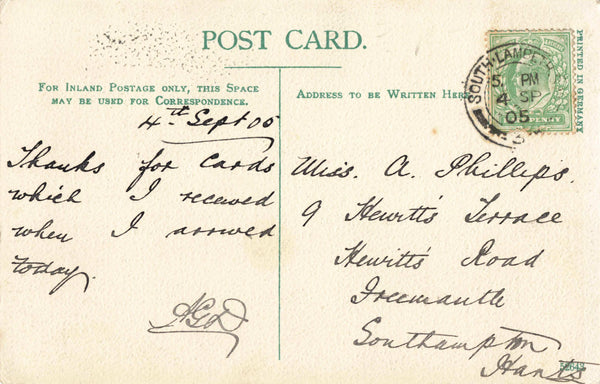 POST CARD.
FOR INLAND POSTAGE ONLY, THIS SPACE
MAY BE USED FOR CORRESPONDENCE.
4th Sept 05
Thanks for cards
which I received
when I arrived
today.
AGD
ADDRESS TO BE WRITTEN HERE
SOUTH-LAMBETH
5. PM
4 SP
05
PENNY
PRINTED IN GERMANY
Miss. A. Phillips.
9 Hewitt's Terrace
Hewitt's Road
Freemantle
Southampton
Hants